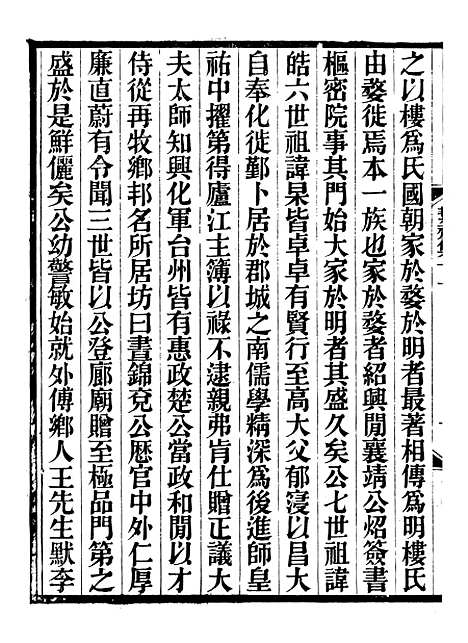 之以樓爲氏國朝家於婺於明者最著相傳爲明樓氏
由婺徙焉本一族也家於婺者紹興閒襄靖公炤簽書
樞密院事其門始大家於明者其盛久矣公七世祖諱
皓六世祖諱杲皆卓卓有賢行至高大父郁寖以昌大
自奉化徙鄞卜居於郡城之南儒學精深爲後進師皇
祐中擢第得廬江主簿以祿不逮親弗肯仕贈正議大
夫太師知興化軍台州皆有惠政楚公當政和閒以才
侍從再牧鄉邦名所居坊曰晝錦兗公厯官中外仁厚
廉直蔚有令聞三世皆以公登廊廟贈至極品門第之
盛於是鮮儷矣公幼警敏始就外傅鄉人王先生默李